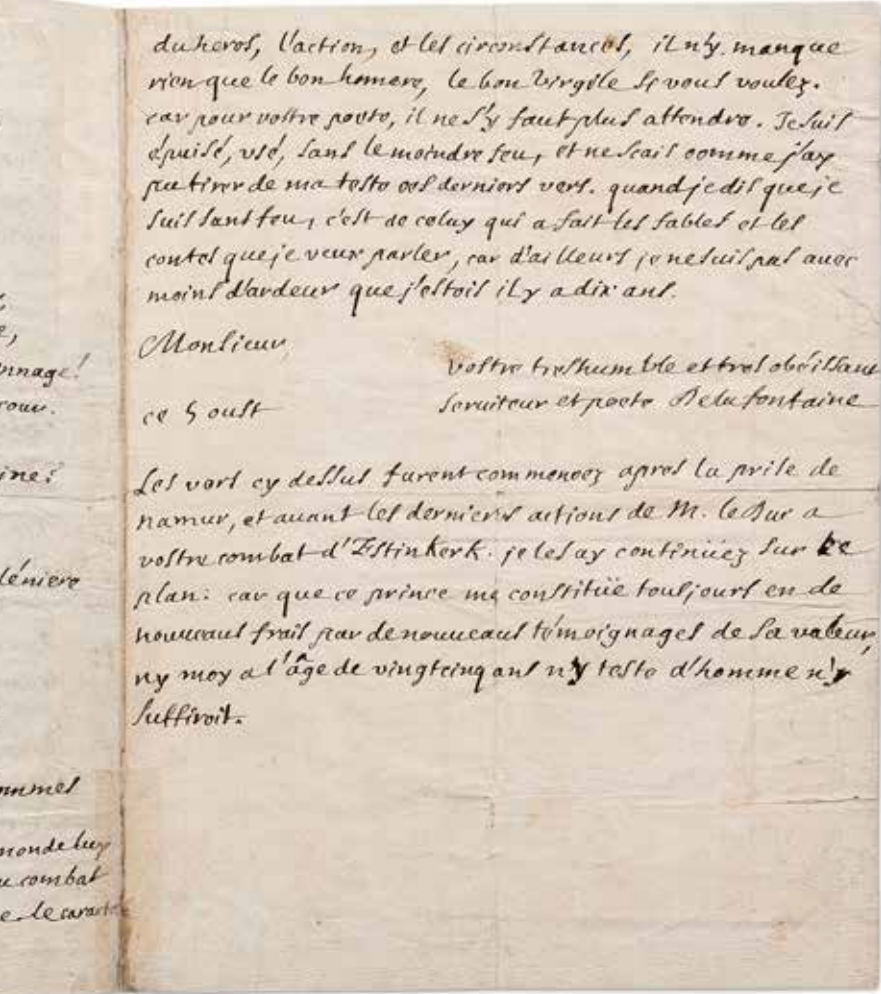 e,
nnage!
cour.
ine?
léniere
mmes
monde luy
u combat
e le caracte
du heros, l'action, et les circonstances, il n'y manque
rien que le bon homere, le bon Virgile si vous voulez.
car pour vostre poete, il ne s'y faut plus attendre. Je suis
épuisé, usé, sans le moindre feu, et ne scais comme j'ay
pu tirer de ma teste ces derniers vers. quand je dis que je
suis sans feu, c'est de celuy qui a fait les fables et les
contes que je veux parler, car d'ailleurs je ne suis pas avec
moins d'ardeur que j'estois il y a dix ans.
Monsieur,
vostre tres humble et tres obéissant
serviteur et poete De la fontaine
ce 5 oust
Les vers cy dessus furent commencez apres la prise de
namur, et avant les dernieres actions de M. le Duc a
vostre combat d'Estinkerk. je les ay continüez sur ce
plan: car que ce prince me constitüe tousjours en de
nouveaus frais par de nouveaus témoignages de sa valeur,
ny moy a l'âge de vingtcinq ans n'y teste d'homme n'y
suffiroit.